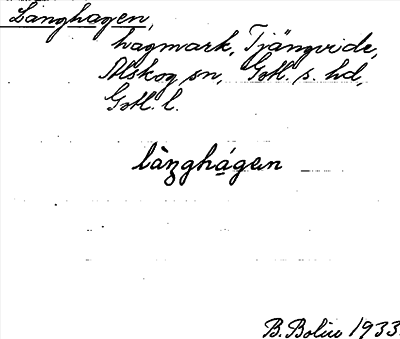 Långhagen,
hagmark, Tjängvide,
Alskog sn, Gotl. s. hd,
Gotl. l.
làŋghá̱gen
B. Bolin 1933.